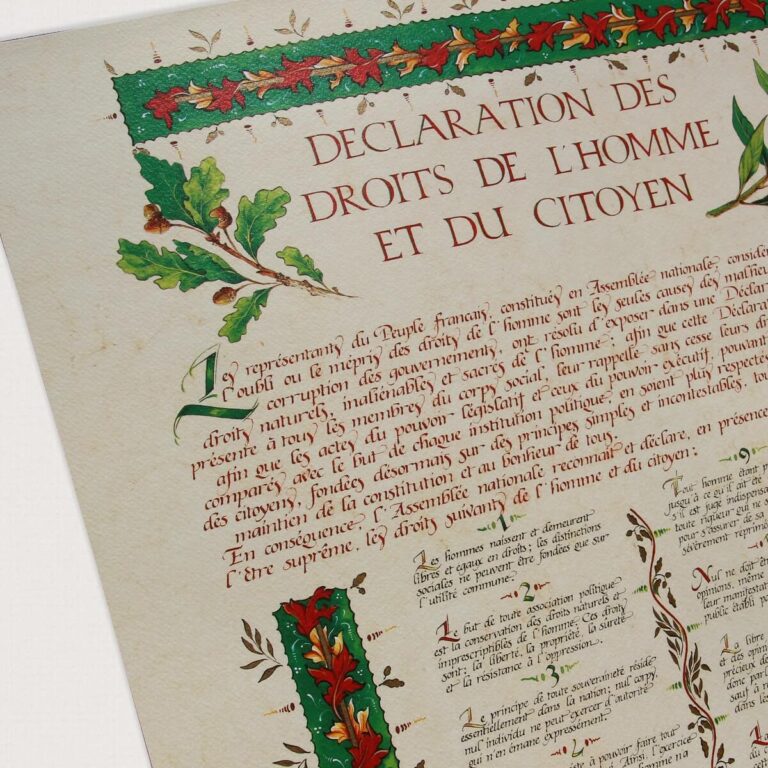 DECLARATION DES
DROITS DE L'HOMME
ET DU CITOYEN
Les représentants du Peuple francais, constitués en Assemblée nationale, considér
l'oubli ou le mépris des droits de l'homme sont les seules causes des malheu
corruption des gouvernements, ont résolu d'exposer dans une Déclar
droits naturels, inaliénables et sacrés de l'homme; afin que cette Déclara
présente à tous les membres du corps social, leur rappelle sans cesse leurs dr
afin que les actes du pouvoir législatif et ceux du pouvoir exécutif, pouvant
comparés avec le but de chaque institution politique, en soient plus respectés
des citoyens, fondées désormais sur des principes simples et incontestables, tou
maintien de la constitution et au bonheur de tous.
En conséquence, l'Assemblée nationale reconnait et déclare, en présence
l'être suprême, les droits suivants de l'homme et du citoyen:
1
Les hommes naissent et demeurent
libres et egaux en droits; les distinctions
sociales ne peuvent être fondées que sur
l'utilité commune.
2
Le but de toute association politique
est la conservation des droits naturels et
imprescriptibles de l'homme. Ces droits
sont: la liberté, la propriété, la sûreté
et la résistance à l'oppression.
3
Le principe de toute souveraineté réside
essentiellement dans la nation; nul corps,
nul individu ne peut exercer d'autorité
qui n'en émane expressément.
à pouvoir faire tout
Ainsi, l'exercice
9
Tout homme étant p
jusqu à ce qu'il ait été
s'il est jugé indispensa
toute rigueur qui ne s
pour s'assurer de sa
sévèrement réprim
Nul ne doit êtr
opinions, même
leur manifestat
public établi p
La libre
et des opini
précieux de
donc parl
sauf à r
dans les